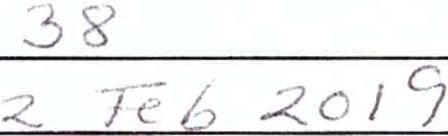 38
2 Feb 2019